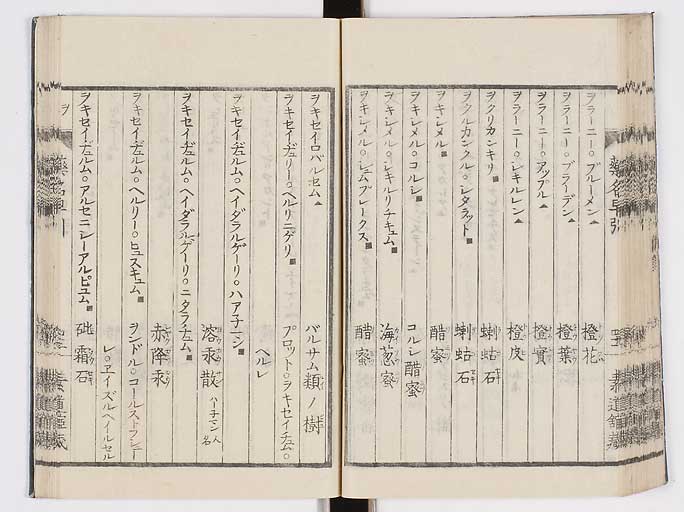 ヲラーニー○ブルーメン▲ 橙花
ヲラーニー○ブラーデン▲ 橙葉
ヲラーニー○アップル▲ 橙實
ヲラーニー○レキルレン▲ 橙皮
ヲクリカンキリ 蝲蛄石
ヲクルカンクル○レタラット 蝲蛄石
ヲキレメル 醋蜜
ヲキレメル○コルシ コルシ醋蜜
ヲキレメル○レキルリチキュム 海葱蜜
ヲキレメル○レムプレーキス 醋蜜
ヲキセイロバルセム▲ バルサム類ノ樹
ヲキセイヂュリー○ヘルリニゲリ プロット○ヲキセイチュム○
ヘルレ
ヲキセイヂュルム○ヘイダラルゲーリ○ハアチーシ 溶汞散 ハーチマン人名
ヲキセイヂュルム○ヘイダラルゲーリ○ニタラチュム 赤降汞
ヲキセイヂュルム○ヘルリー○ヒュスキュム ヲンドル○コールストフシュー
レ○エイズルヘイルセル
ヲキセイヂュルム○アルセニシーアルビュム 砒霜石
ヲ